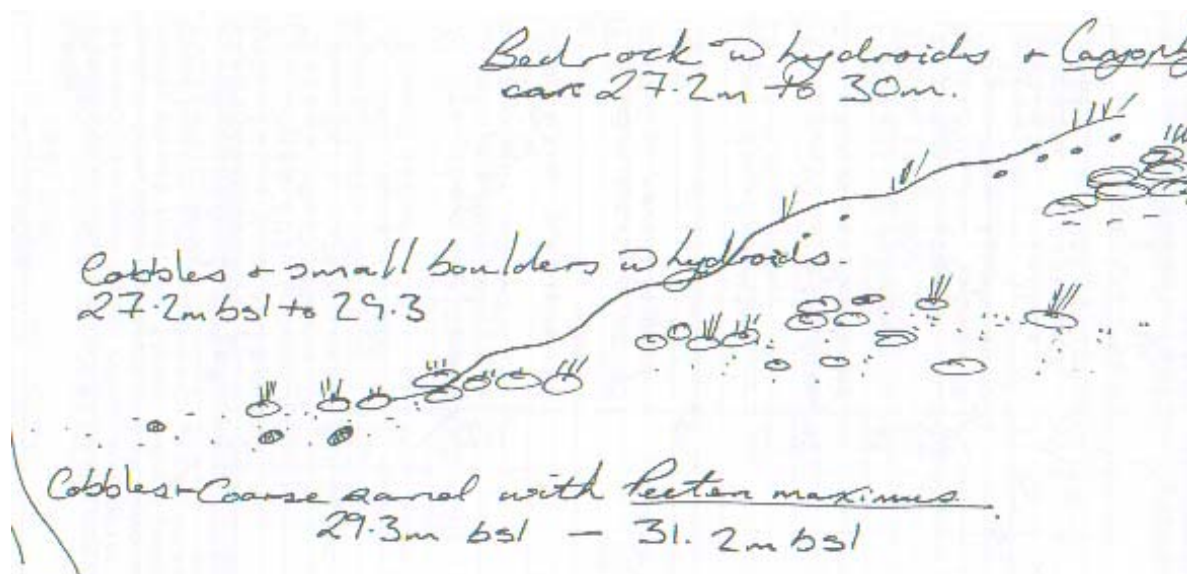 Bedrock w hydroids +
27.2m to 30m.
Cobbles + small boulders w hydroids.
27.2m bsl to 29.3
Cobbles + Coarse sand with Pecten maximus
29.3m bsl — 31.2m bsl